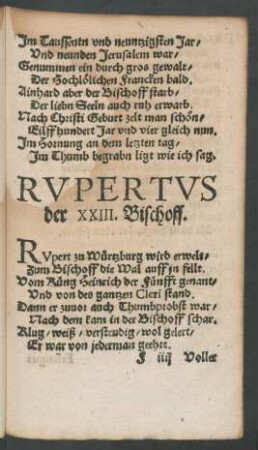 Im Taussentn vnd neuntzigsten Jar/
Vnd neunden Jerusalem war/
Genummen ein durch gros gewalt/
Der Hochlölichen Francken bald.
Ainhard aber der Bischoff starb/
Der liebn Seeln auch ruh erwarb.
Nach Christi Geburt zelt man schön/
Eilff hundert Jar vnd vier gleich nun.
Im Hornung an dem letzten tag/
Im Thumb begrabn ligt wie ich sag.
RVPERTVS
der XXIII. Bischoff.
RVpert zu Würtzburg wird erwelt/
Zum Bischoff die Wal auff jn fellt.
Vom Küng Heinrich der Fünfft genant/
Vnd von des gantzen Cleri stand.
Dann er zuuor auch Thumbprobst war/
Nach dem kam in der Bischoff schar.
Klug/ weiß/ verstendig/ wol gelert/
Er war von jederman geehrt.
F iiij Volle